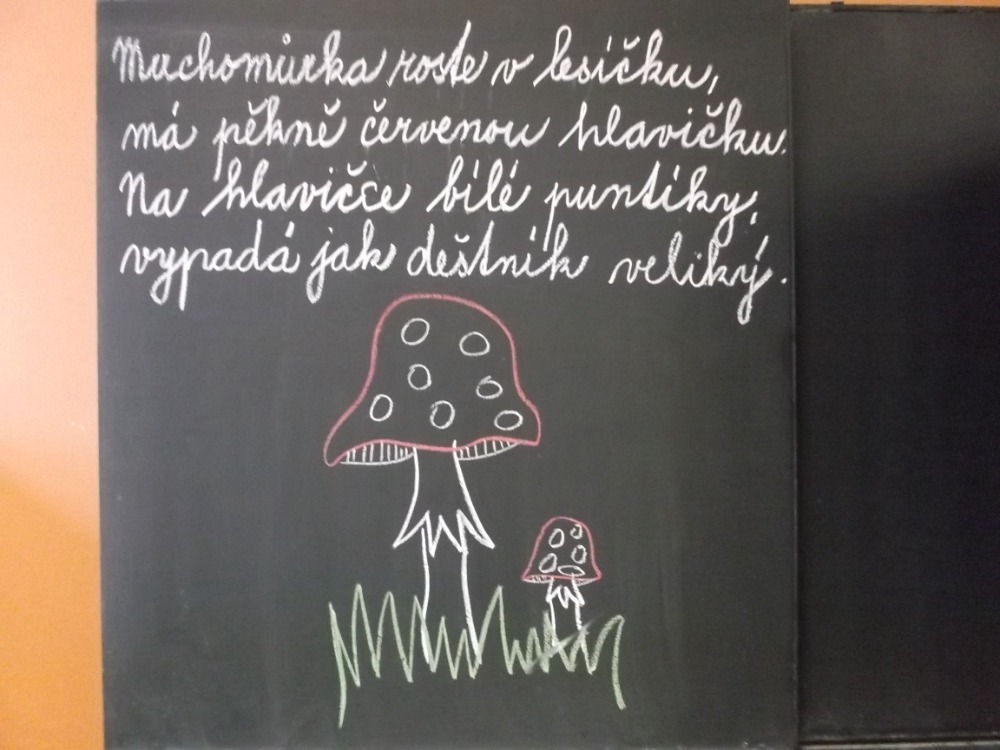 Muchomůrka roste v lesíčku,
má pěkně červenou hlavičku.
Na hlavičce bílé puntíky,
vypadá jak deštník veliký.